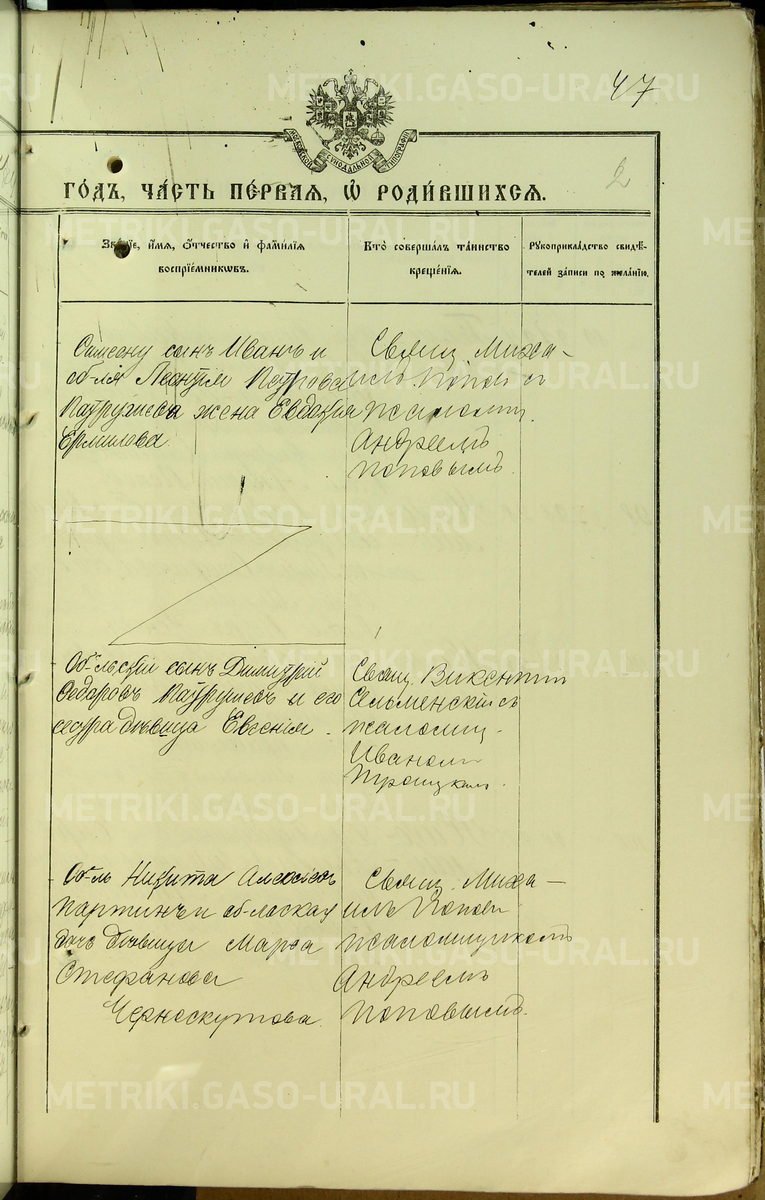 47
МОСКОВСКОЙ СИНОДАЛЬНОЙ ТИПОГРАФІИ
2
ГОДЪ, ЧАСТЬ ПЕРВАЯ, Ѡ РОДИВШИХСЯ.
Званіе, имя, отчество и фамилія воспріемниковъ.
Кто совершалъ таинство крещенія.
Рукоприкладство свидѣтелей записи по желанію.
сынъ Иванъ и
Патрушева жена Евдокія
Ермилова
Свящ. Миха-
илъ Поповъ съ
псаломщ.
Андреемъ
Поповымъ.
Об-льскій сынъ Димитрій
Ѳедоровъ Патрушевъ и его
сестра дѣвица Евгенія.
Свящ. Викентій
Сельменскій съ
псаломщ.
Иваномъ
Троицкимъ.
Об-ль Никита Алексѣевъ
Партинъ и об-льская
дочь дѣвица Марѳа
Стефанова
Черноскутова.
Свящ. Миха-
илъ Поповъ
псаломщикомъ
Андреемъ
Поповымъ.
METRIKI.GASO-URAL.RU